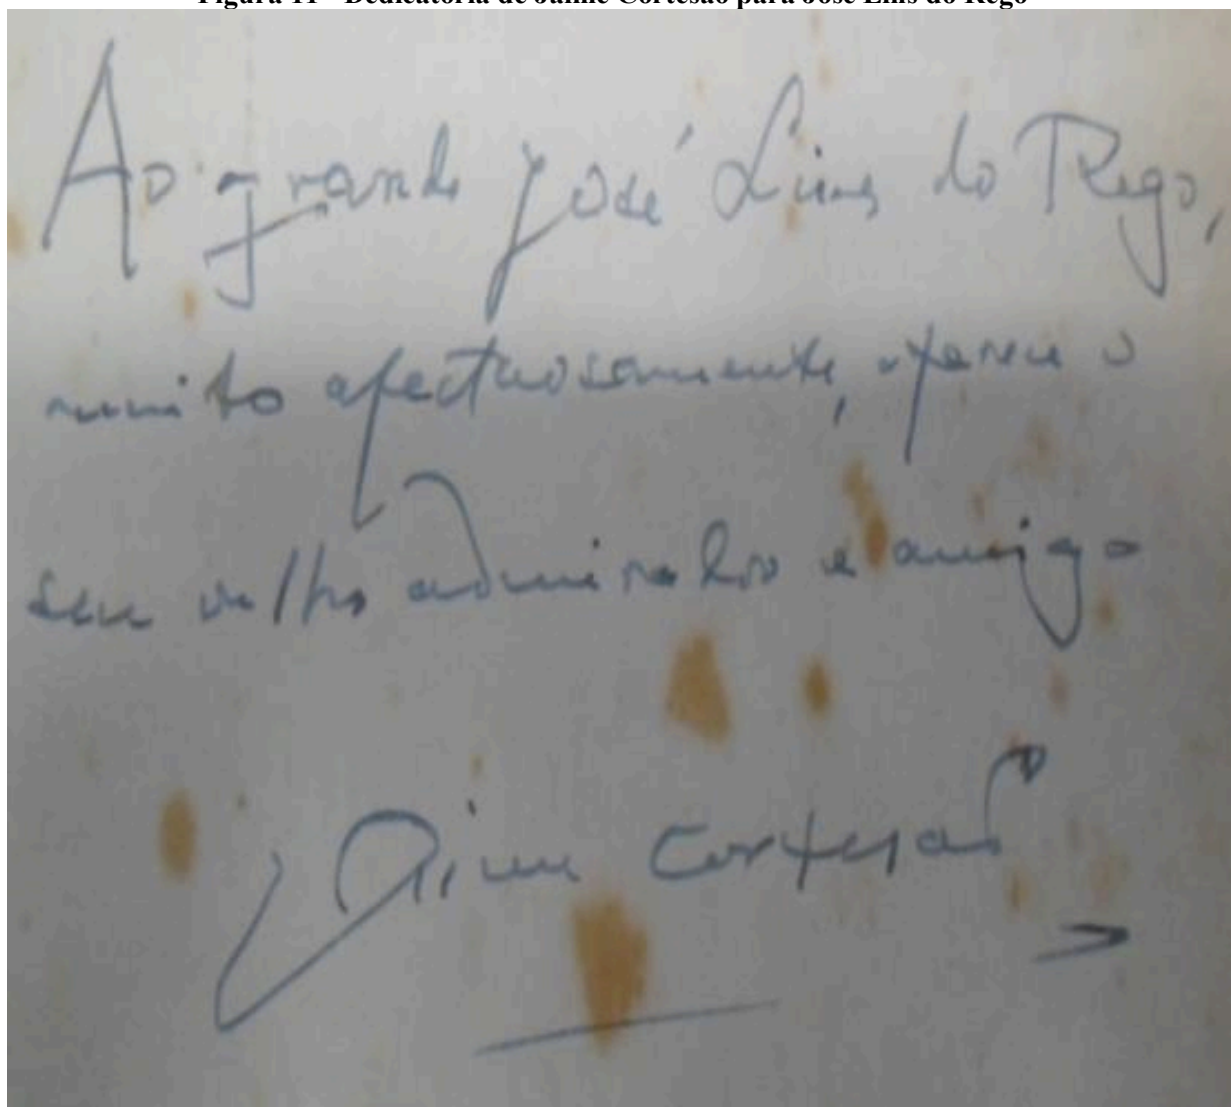 Figura 11 - Dedicatória de Jaime Cortesão para José Lins do Rego
Ao grande José Lins do Rego,
muito afectuosamente, oferece o
seu velho admirador e amigo
Jaime Cortesão